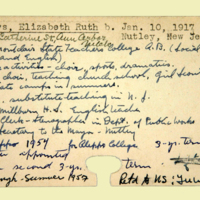 ys, Elizabeth Ruth b. Jan. 10, 1917
Catherine St, Ann Arbor Nutley, New Je
ontclair State Teachers College A.B. (Social
and English)
activities - choir, sports, dramatics
choir, teaching church school, Girl Scou
ate camps in summers.
substitute teaching in N.J.
Millburn H.S. English teacher
Clerk-Stenographer in Dept. of Public Works
Secretary to the Mayor - Nutley
Aleppo 1954 for Aleppo College 3-yr. term
appointed term
second 3-yr.
ough Summer 1957